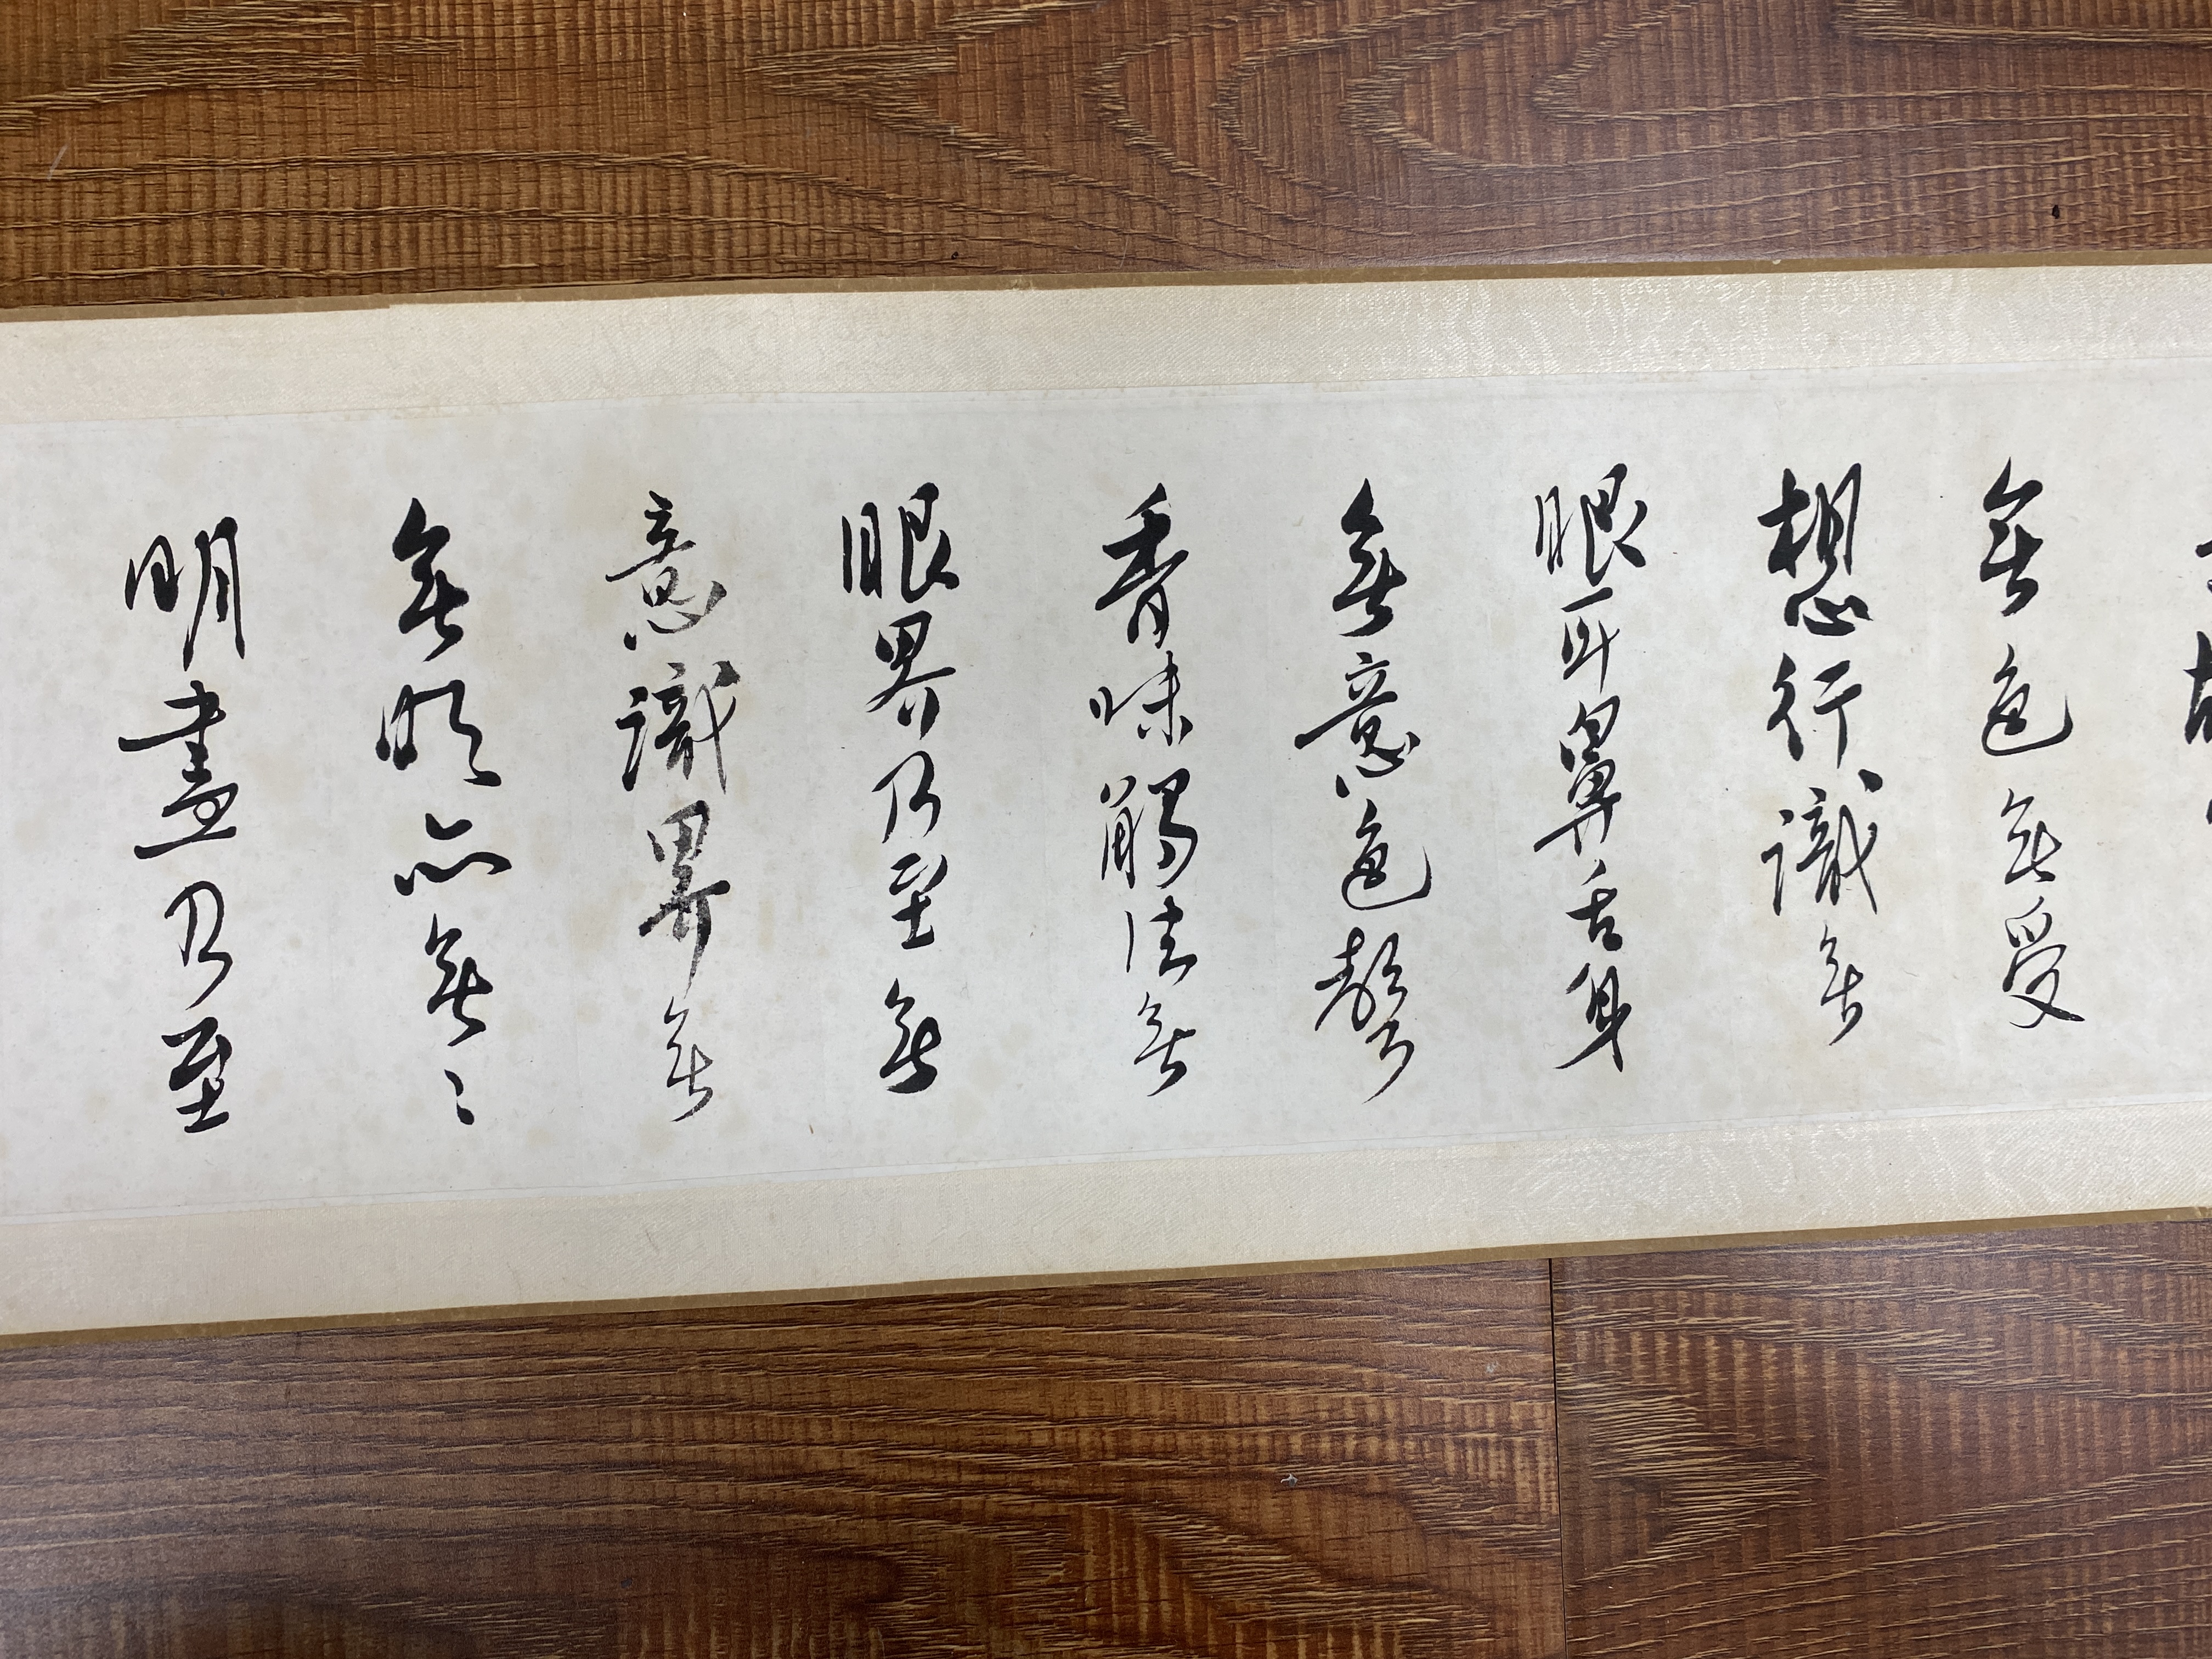 無色無受
想行識無
眼耳鼻舌身
無意色聲
香味觸法無
眼界乃至無
意識界無
無明亦無〻
明盡乃至